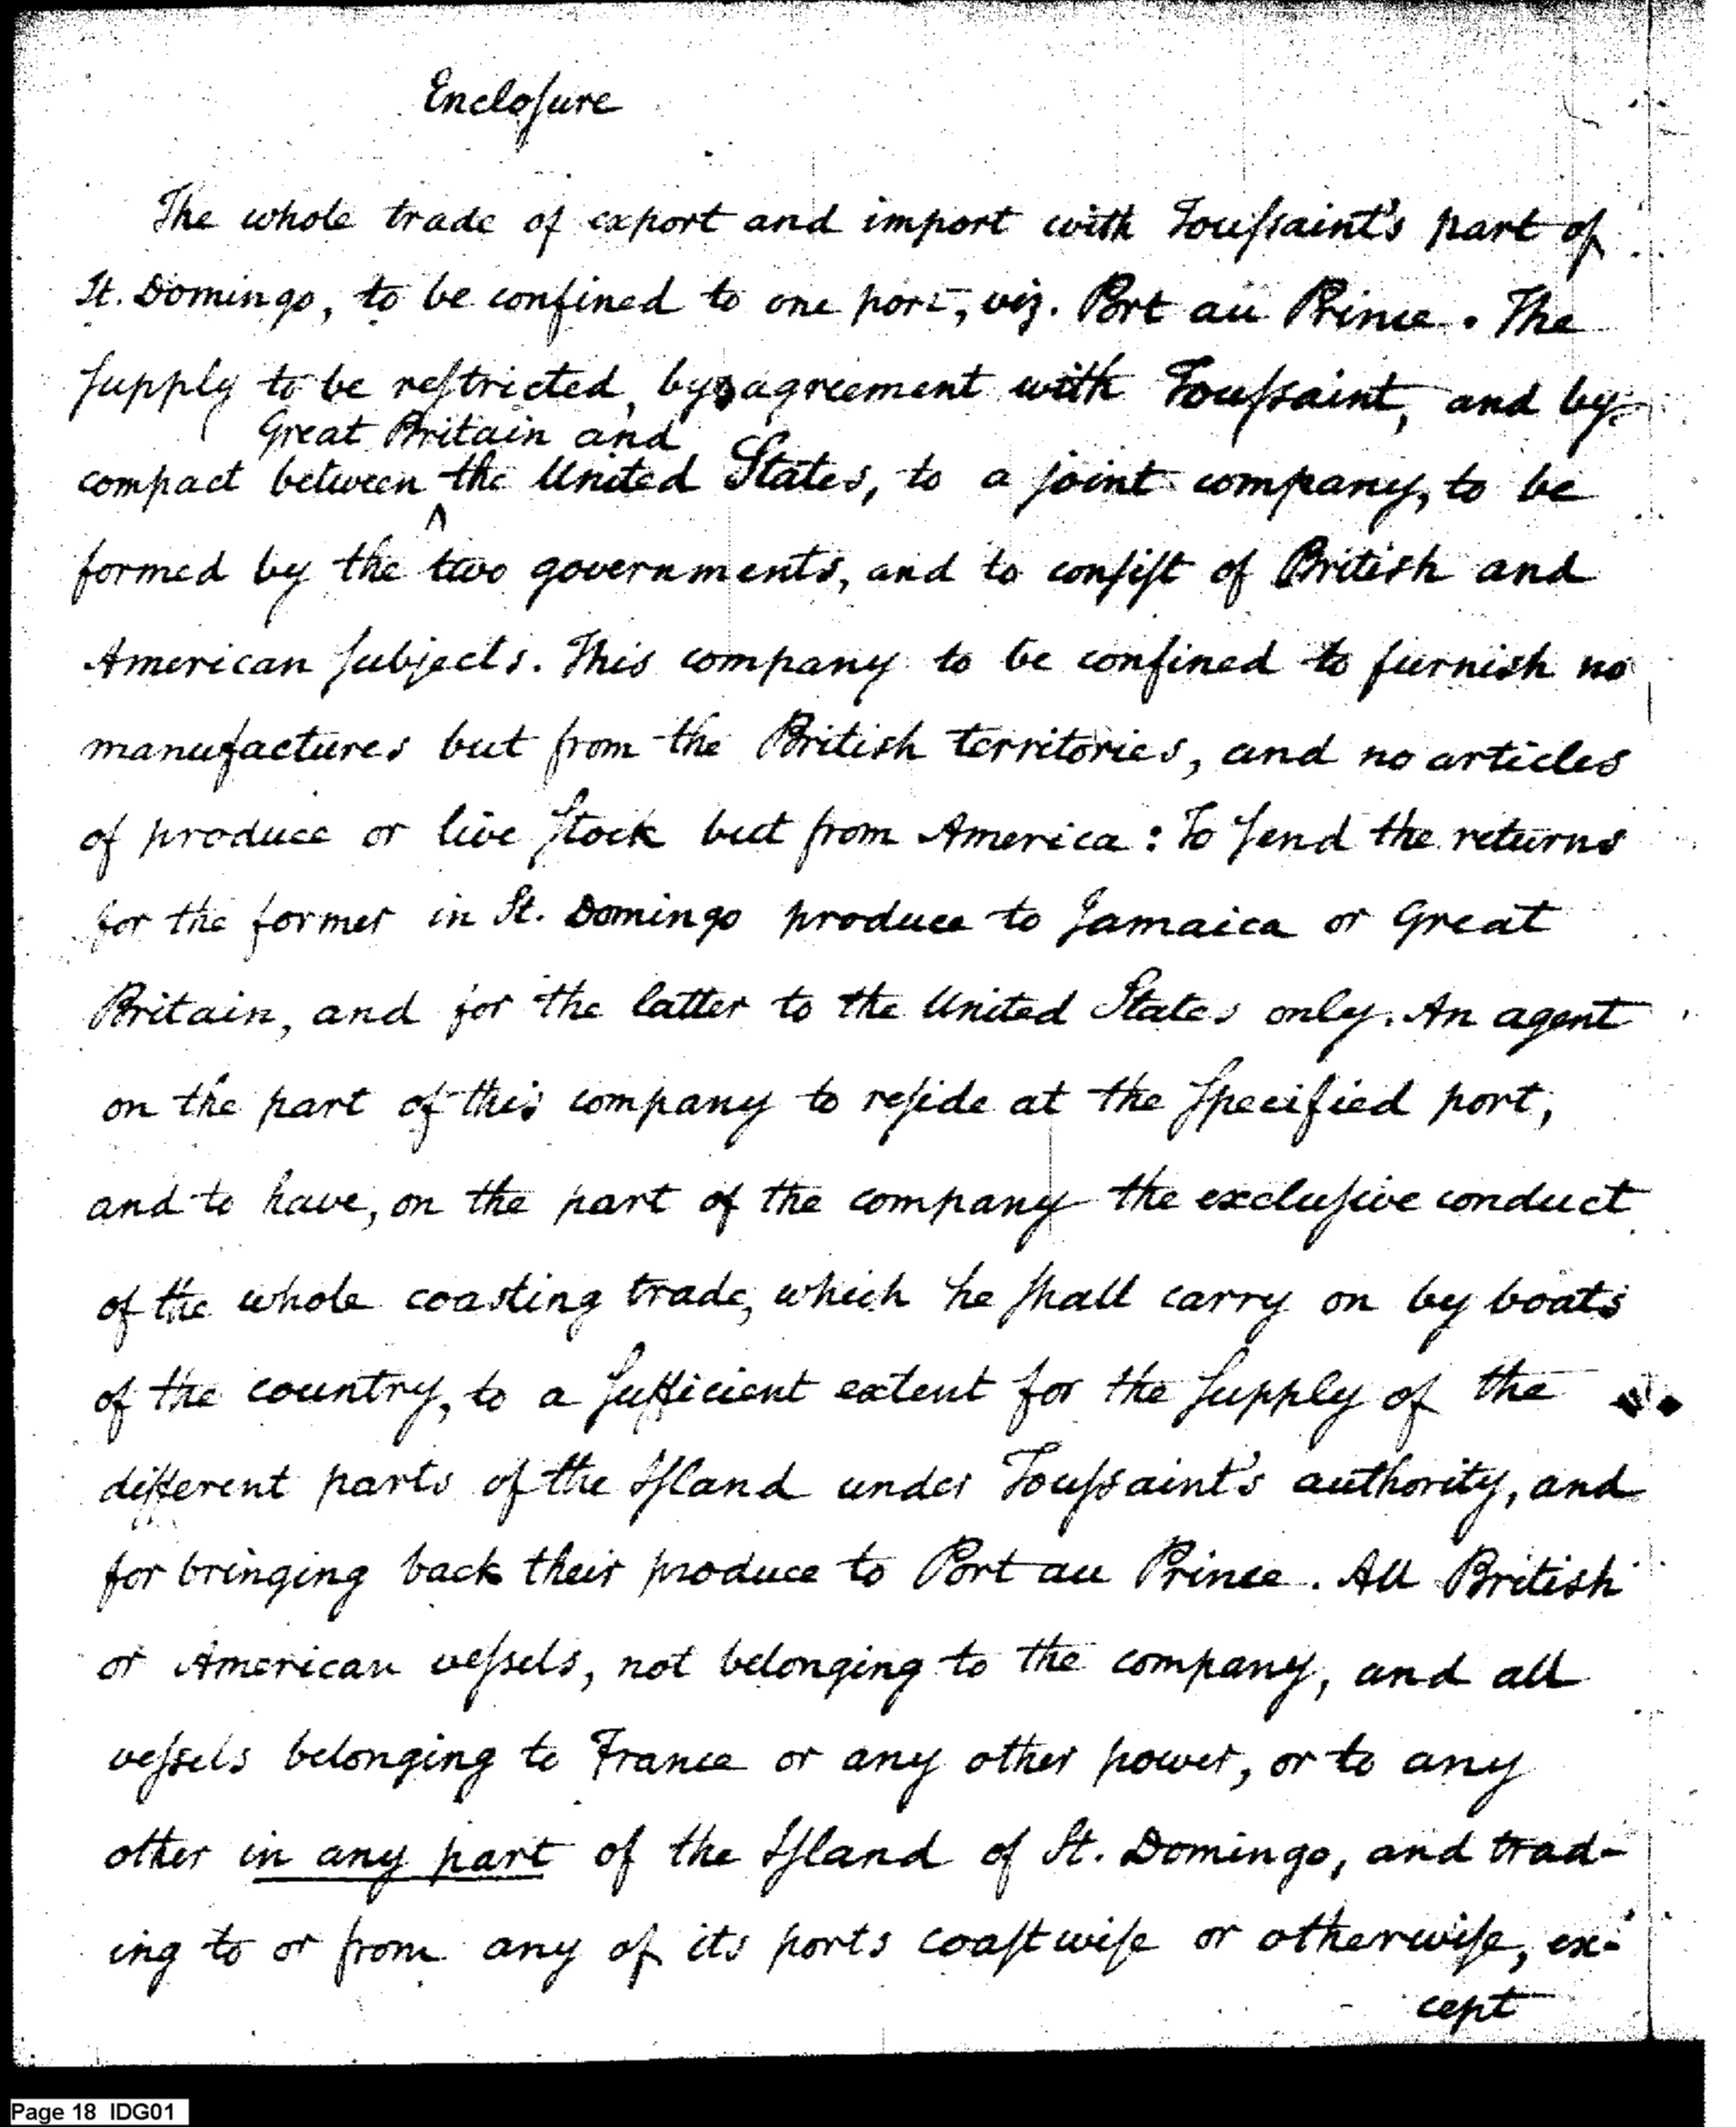 Encloſure
The whole trade of export and import with Touſsaint's part of
St. Domingo, to be confined to one port, viz. Port au Prince. The
ſupply to be reſtricted, by agreement with Touſsaint, and by
Great Britain and
compact between ^ the United States, to a joint company, to be
formed by the two governments, and to conſiſt of British and
American ſubjects. This company to be confined to furnish no
manufactures but from the British territories, and no articles
of produce or live ſtock but from America: To ſend the returns
for the former in St. Domingo produce to Jamaica or Great
Britain, and for the latter to the United States only. An agent
on the part of this company to reſide at the ſpecified port,
and to have, on the part of the company the excluſive conduct
of the whole coasting trade, which he ſhall carry on by boats
of the country, to a ſufficient extent for the ſupply of the
different parts of the Iſland under Touſsaint's authority, and
for bringing back their produce to Port au Prince. All British
or American veſsels, not belonging to the company, and all
veſsels belonging to France or any other power, or to any
other in any part of the Iſland of St. Domingo, and trad-
ing to or from any of its ports coaſtwiſe or otherwiſe, ex-
cept
Page 18 IDG01